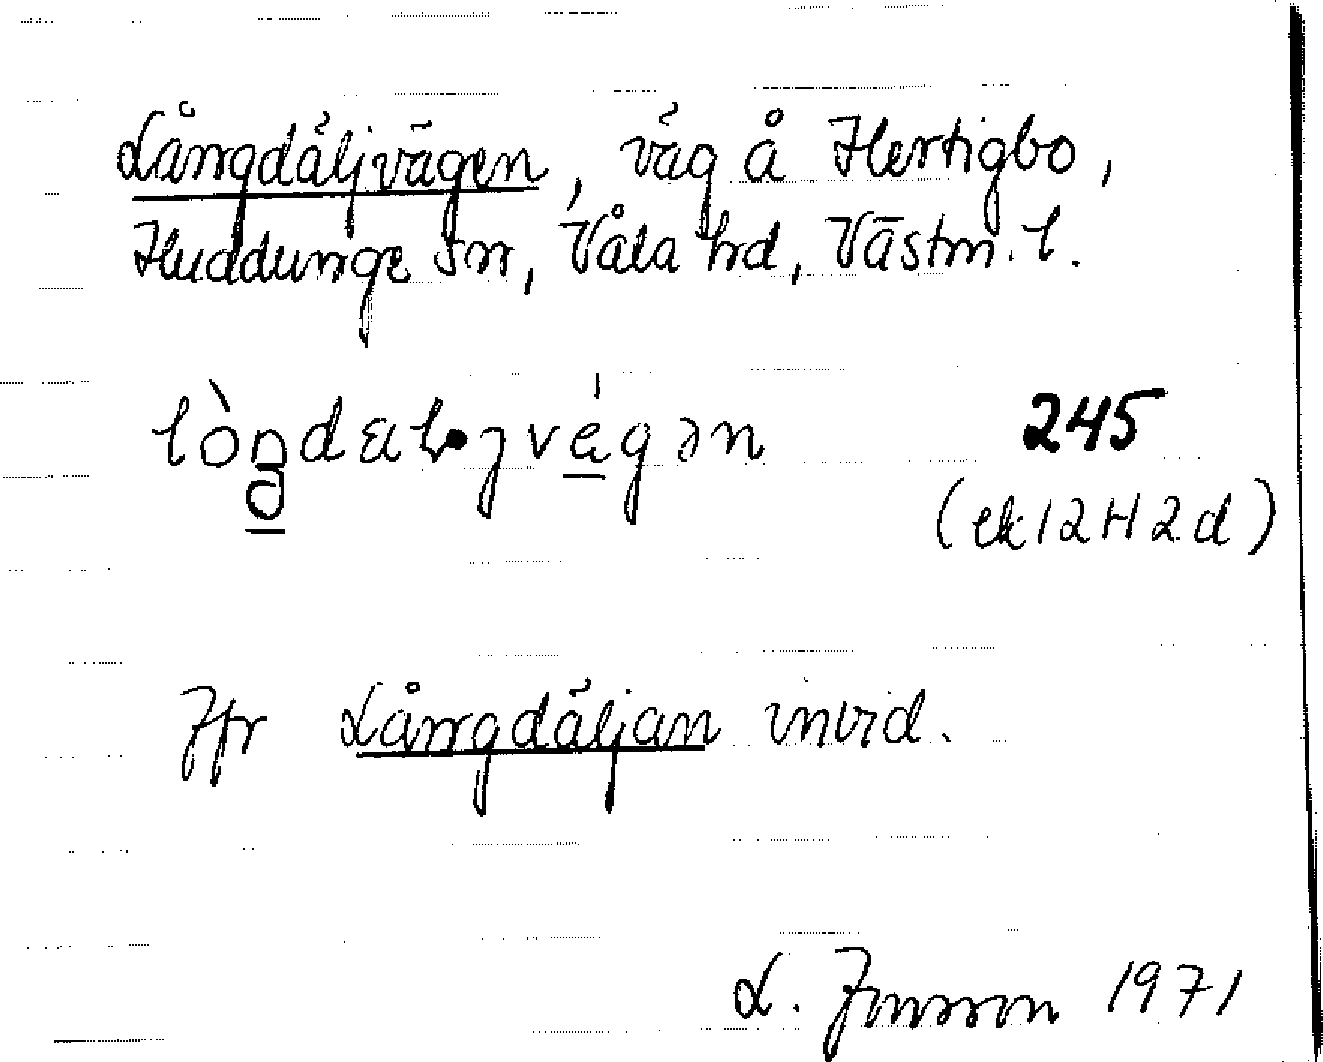 Långdäljvägen, väg å Hertigbo,
Huddunge sn, Våla hd, Västm. l.
245
(ek 12H2d)
Jfr Långdäljan invid.
L. Jonsson 1971